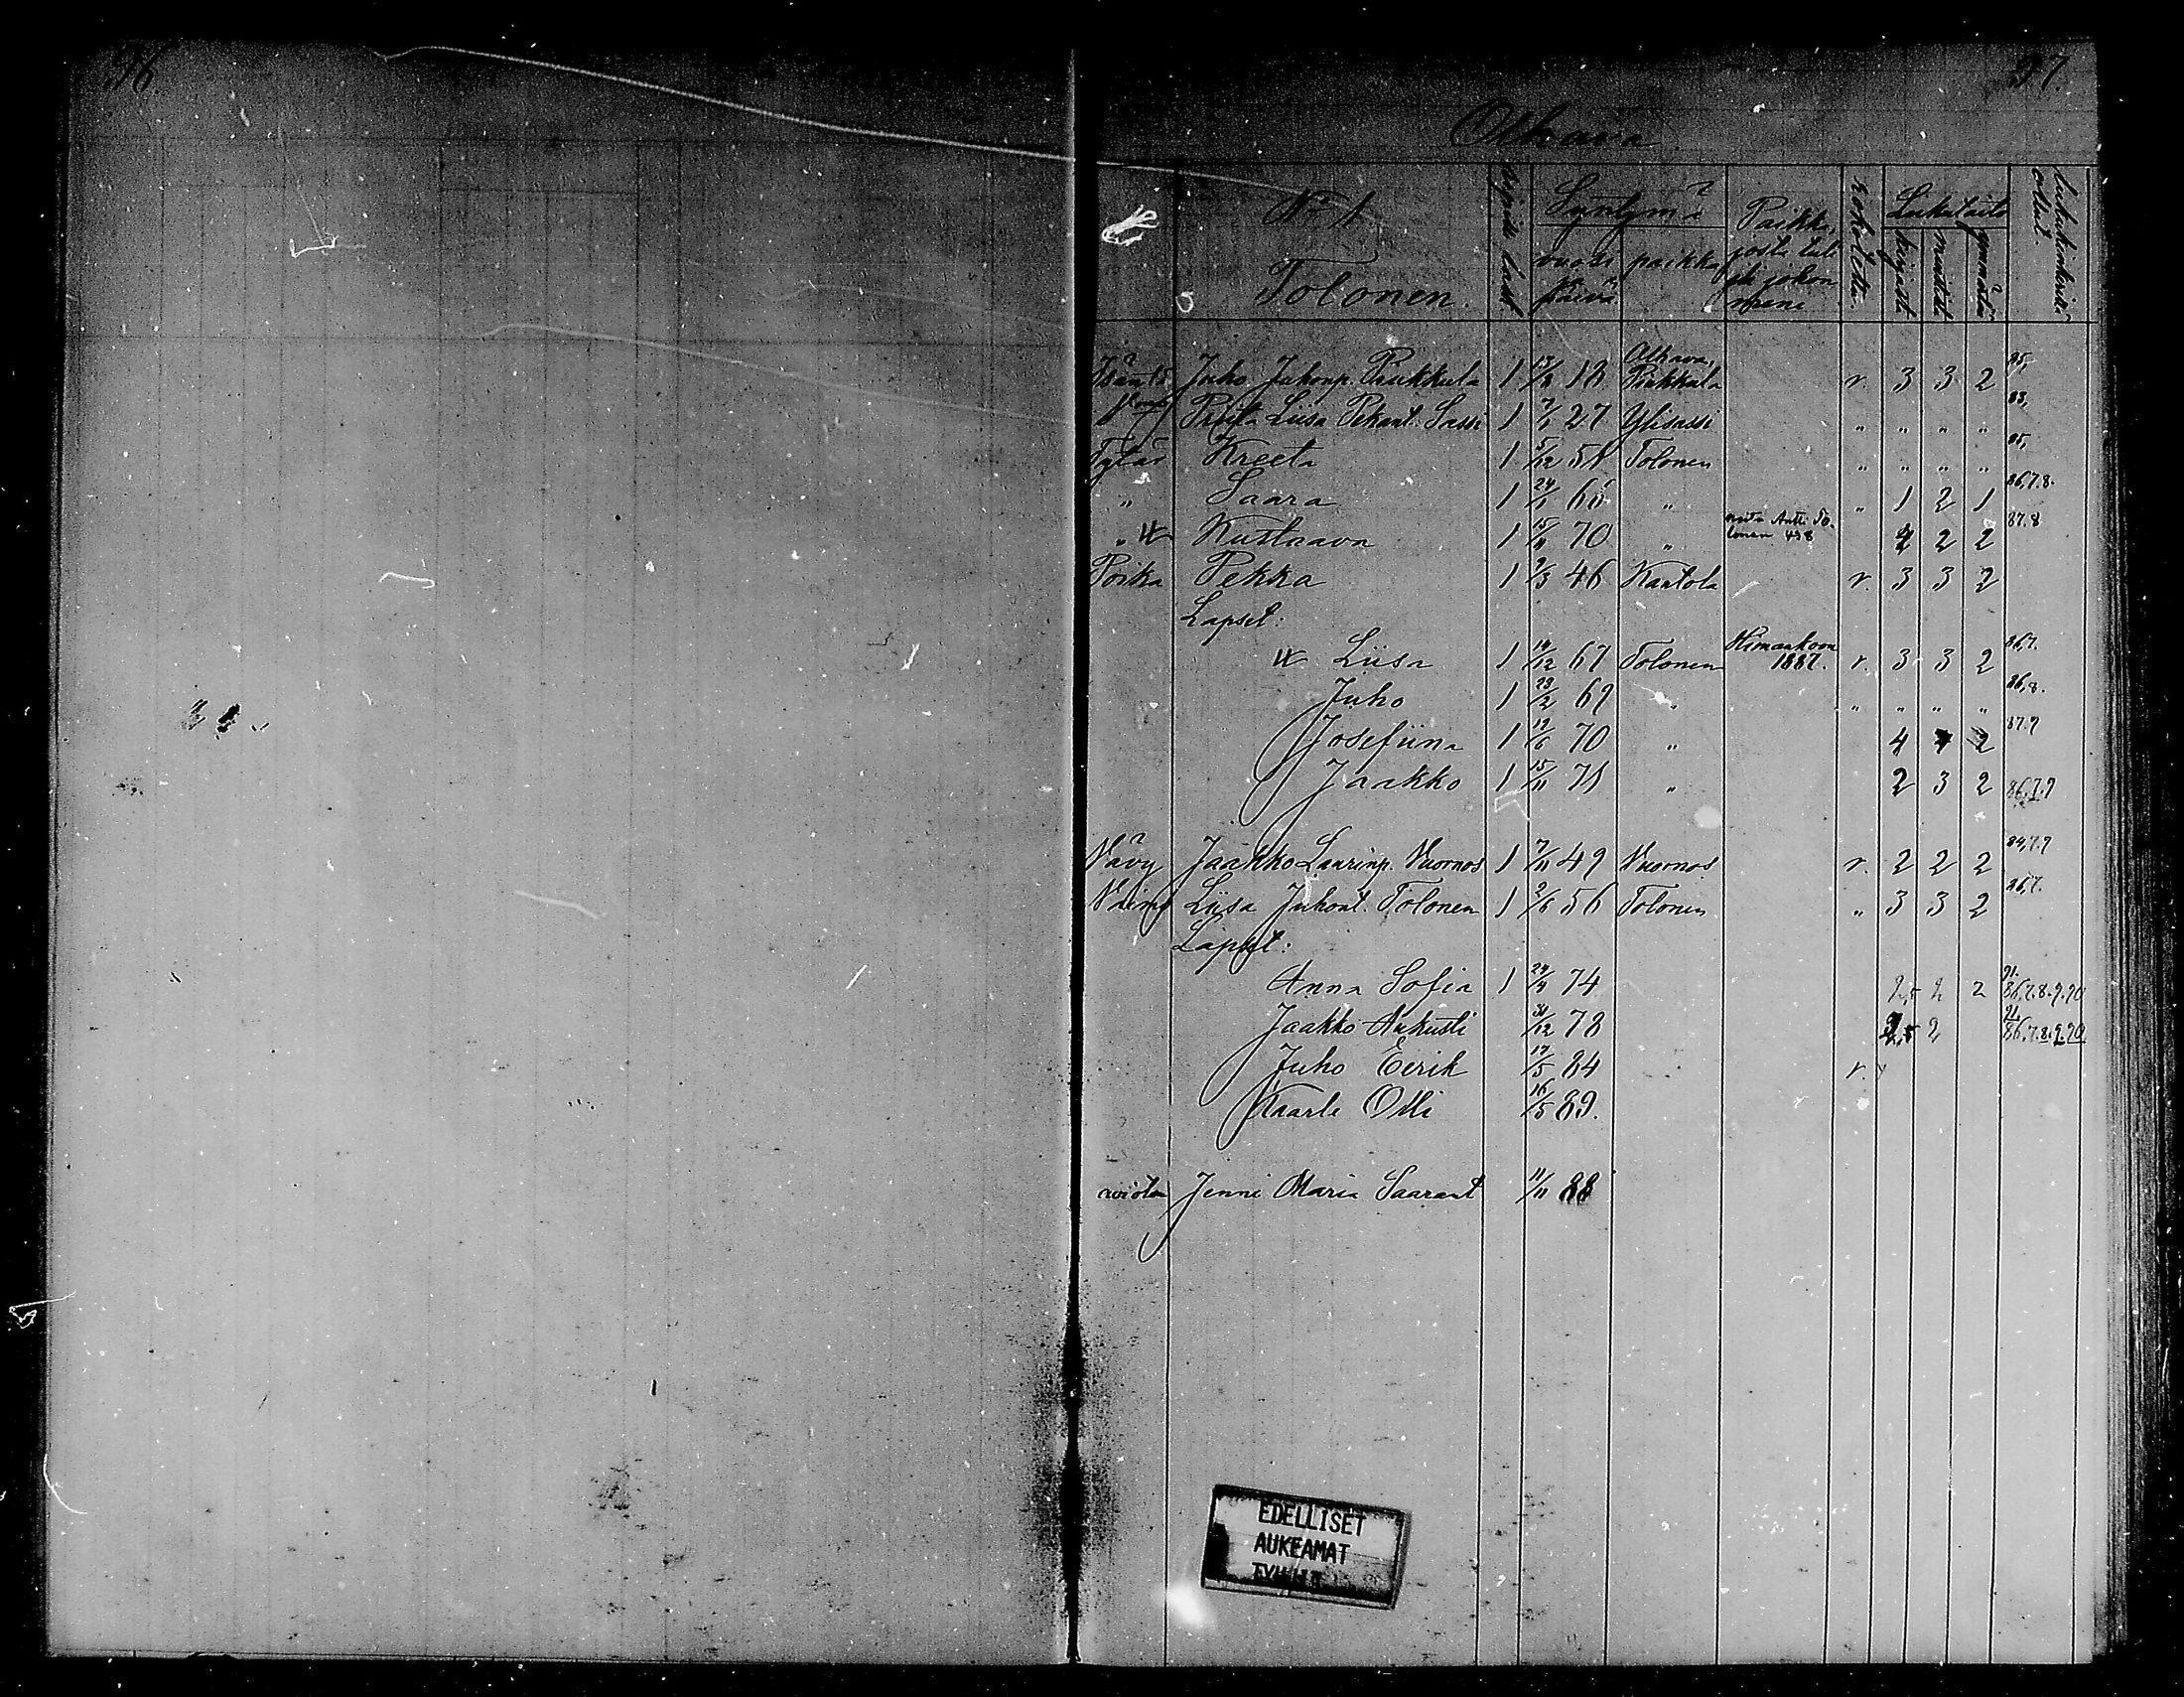 96
97.
Alhava
No 1
Tolonen.
Syntymä
vuosi päivä
paikka
Paikka, josta tuli eli johon meni
rokotettu.
Lukutaito
Isäntä Juho Juhonp. Pirkkala 1 18 Alhava, Pirkkala r. 3 3 2 85,
Priita Liisa Pekant. Sassi 1 27 Ylisassi " " " " 83,
Tytär Kreeta 1 5/12 Tolonen " " " " 85,
" Saara 1 24/1 " " 1 2 1 86,7.8.
" Kustaava 1 15/11 70 " Antti Tolonen 438 2 2 2 87.8
Poika Pekka 1 2/3 46 Kantola r. 3 3 2
Lapset:
Liisa 1 14/12 67 Tolonen Himankoon 1887. r. 3 3 2 86,7.
Juho 1 23/2 69 " " " " " 86,8.
Josefiina 1 19/6 70 " 4 4 2 87.9
Jaakko 1 15/11 " 2 3 2 86.7.9
Vävy Jaakko Laurinp. Vuornos 1 7/11 49 Vuornos r. 2 2 2 84,7.9
Vaimo Liisa Juhont. Tolonen 1 2/6 56 Tolonen " 3 3 2 86,7.
Lapset:
Anna Sofia 1 24/4 74 2,5 2 2 91. 86,7.8.9.90
Jaakko Aukusti 31/12 78 2,5 2 91. 86,7.8.9.90.
Juho Eerik 17/5 84 r.
Kaarle Olli 16/5 89.
Jenni Maria Saarant 11/11 88
EDELLISET
AUKEAMAT
TYHJIÄ